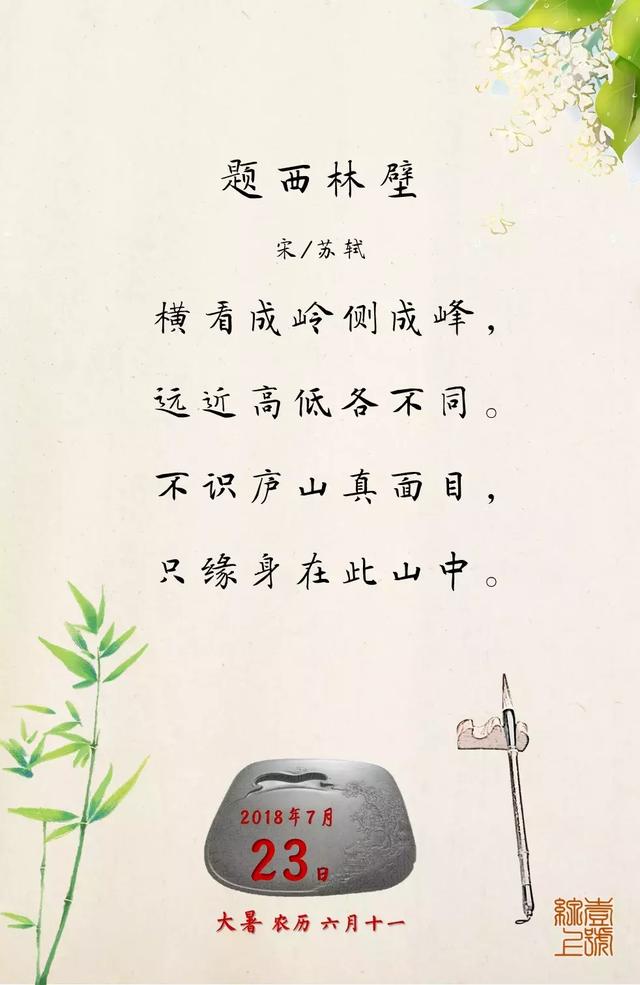 题西林壁
宋/苏轼
横看成岭侧成峰，
远近高低各不同。
不识庐山真面目，
只缘身在此山中。
2018年7月
23日
大暑 农历 六月十一